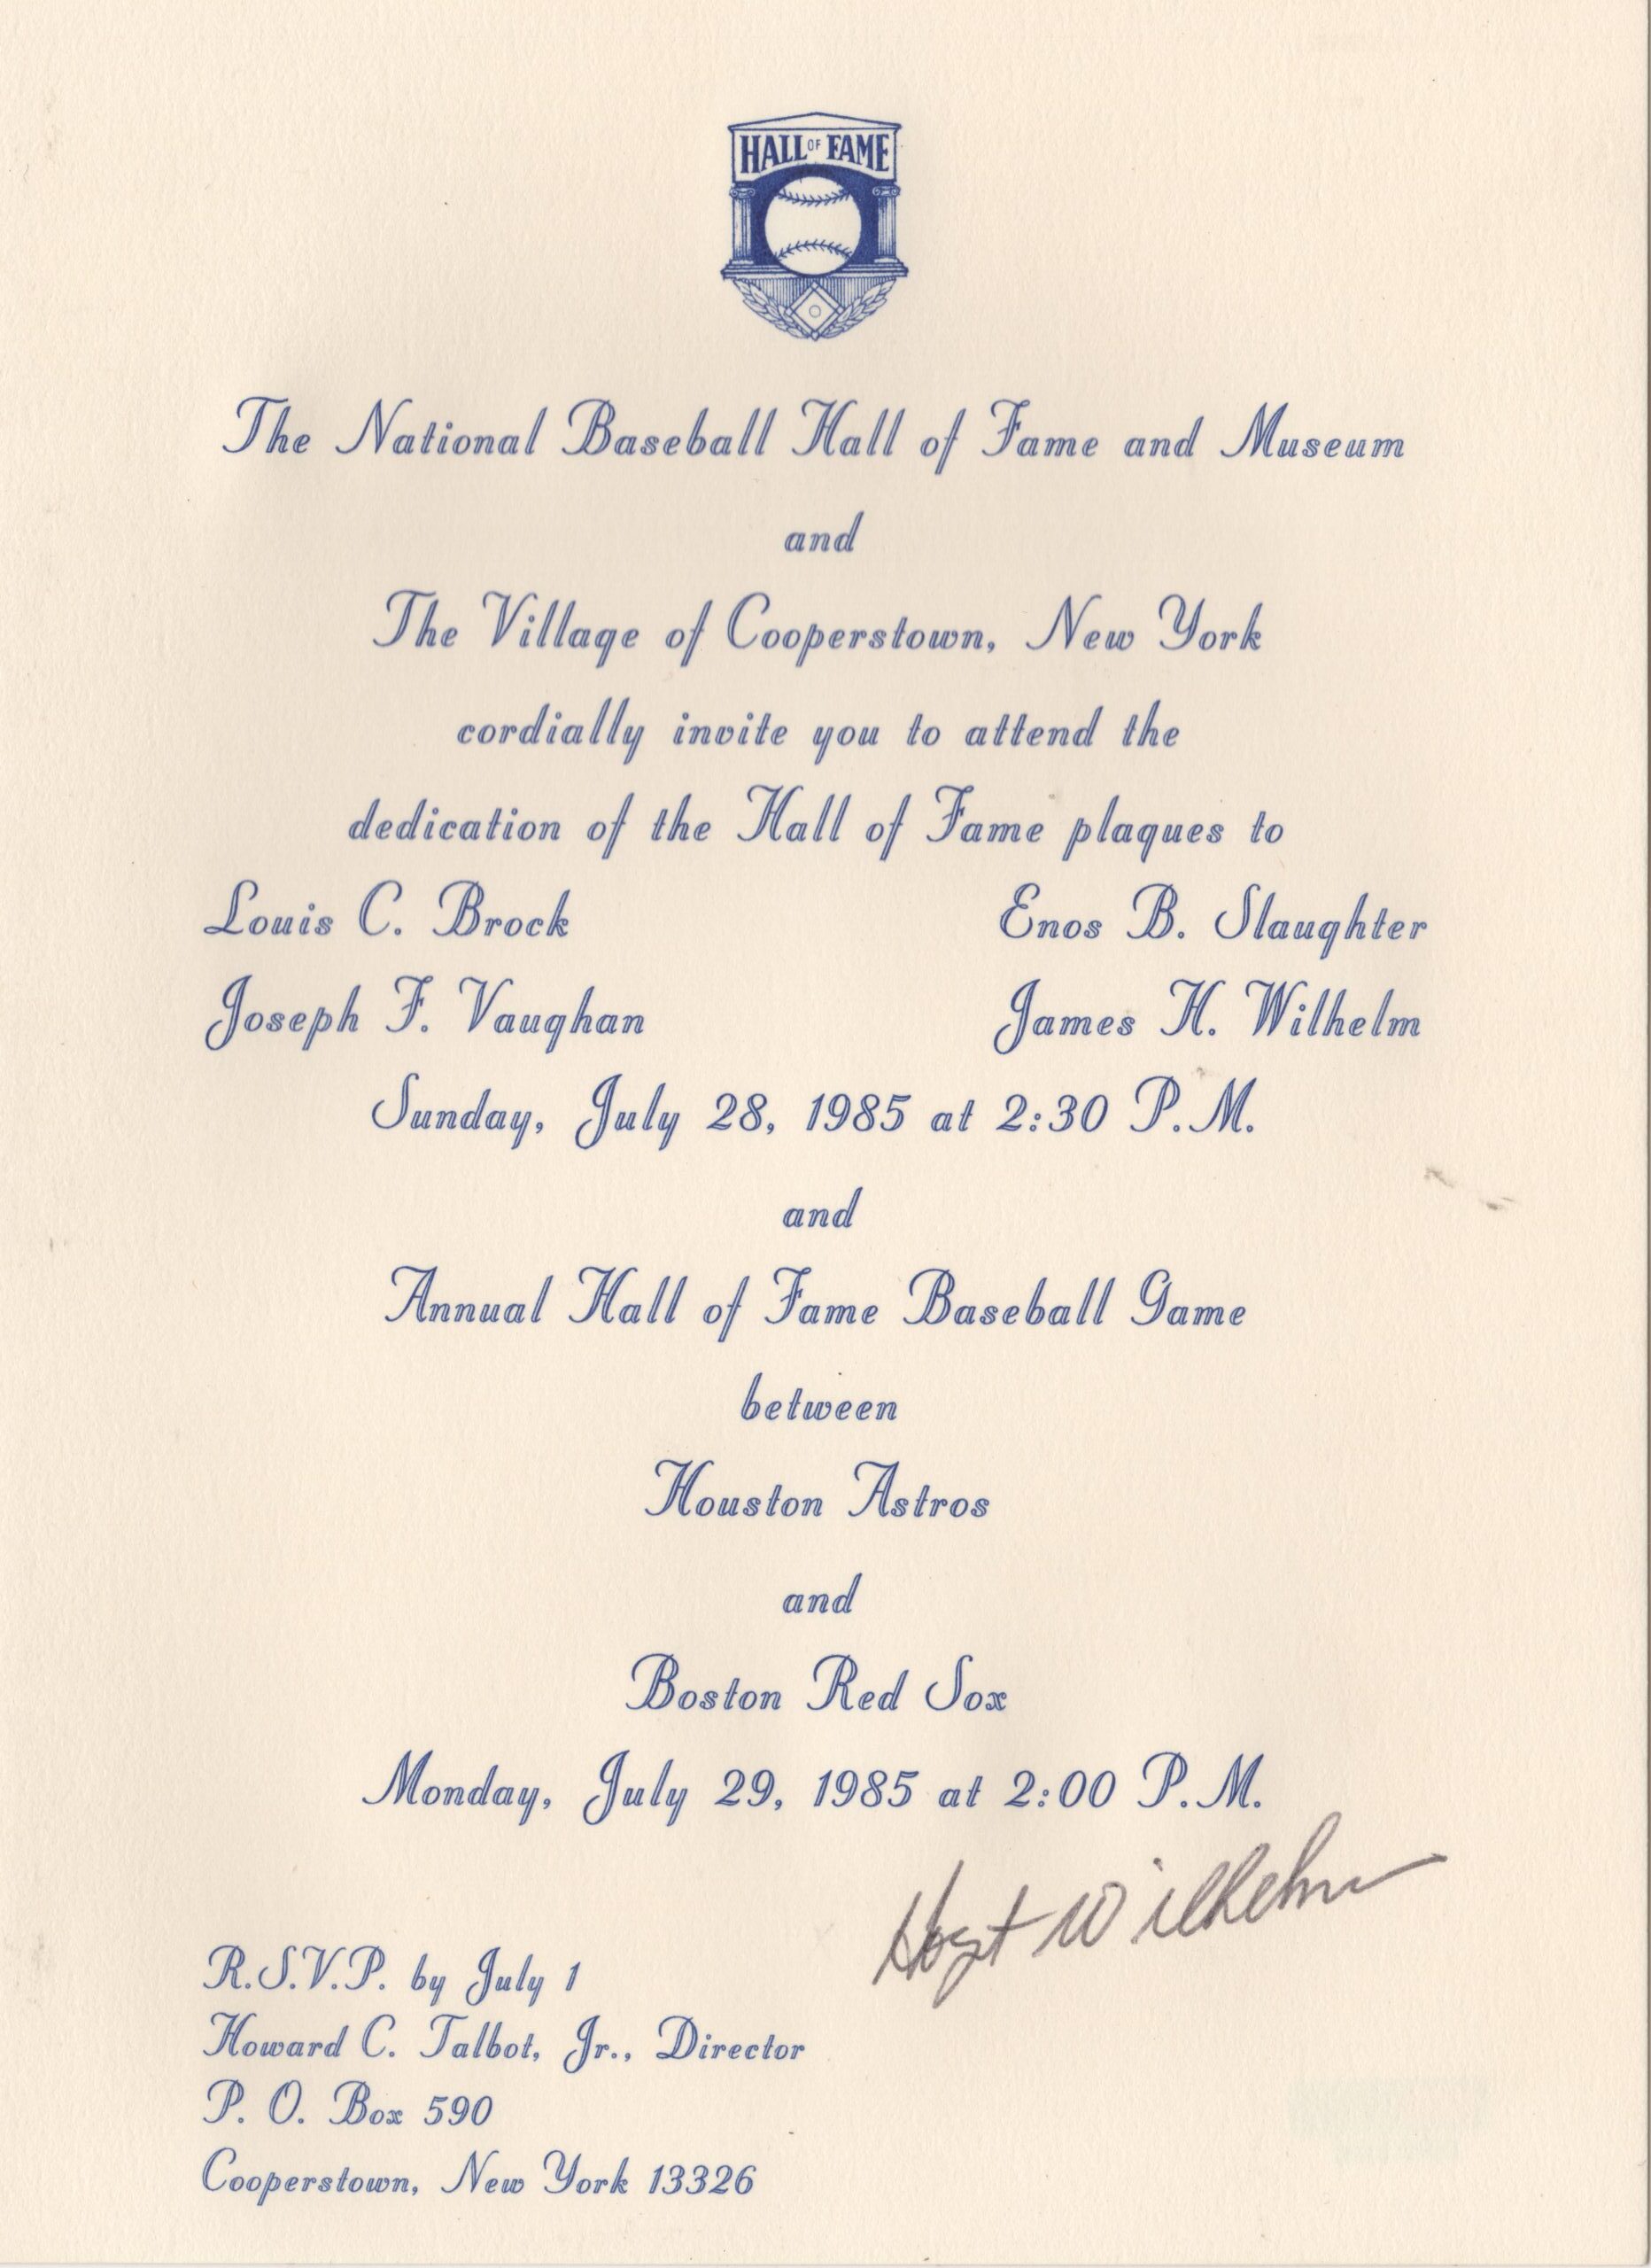 HALL OF FAME
The National Baseball Hall of Fame and Museum
and
The Village of Cooperstown, New York
cordially invite you to attend the
dedication of the Hall of Fame plaques to
Louis C. Brock Enos B. Slaughter
Joseph F. Vaughan James H. Wilhelm
Sunday, July 28, 1985 at 2:30 P.M.
and
Annual Hall of Fame Baseball Game
between
Houston Astros
and
Boston Red Sox
Monday, July 29, 1985 at 2:00 P.M.
Hoyt Wilhelm
R.S.V.P. by July 1
Howard C. Talbot, Jr., Director
P. O. Box 590
Cooperstown, New York 13326